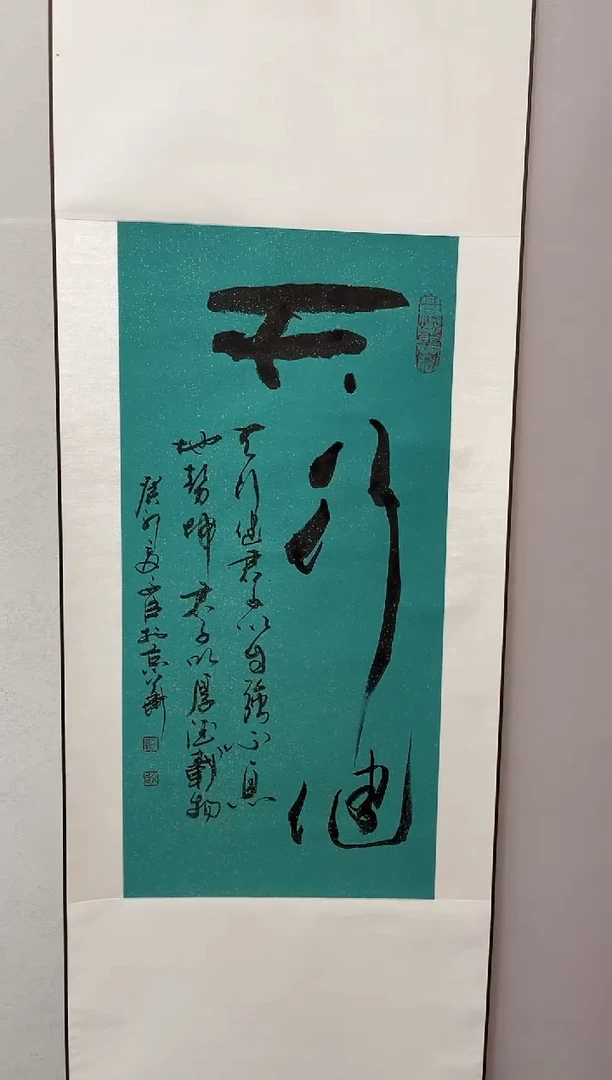 天行健
天行健君子以自强不息
地势坤君子以厚德载物
癸卯夏 于京华